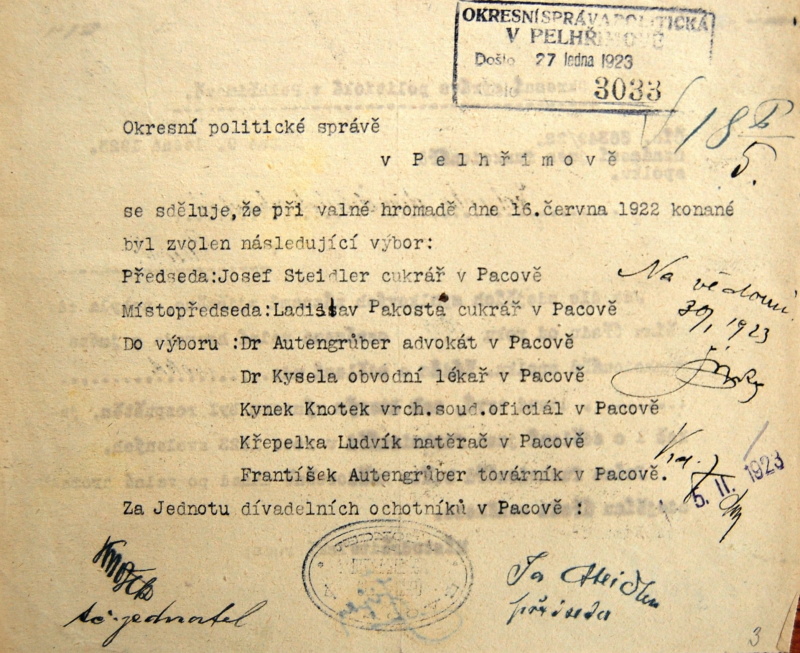 OKRESNÍ SPRÁVA POLITICKÁ
V PELHŘIMOVĚ
Došlo 27 ledna 1923
3033
18
5.
Okresní politické správě
v Pelhřimově
se sděluje,že při valné hromadě dne 16.června 1922 konané
byl zvolen následující výbor:
Předseda:Josef Steidler cukrář v Pacově
Místopředseda:Ladislav Pakosta cukrář v Pacově
Do výboru :Dr Autengrůber advokát v Pacově
Dr Kysela obvodní lékař v Pacově
Kynek Knotek vrch.soud.oficiál v Pacově
Křepelka Ludvík natěrač v Pacově
František Autengrůber továrník v Pacově.
Za Jednotu dívadelních ochotníků v Pacově :
Na vědomí
30/1 1923
5. II. 1923
Knotek
jednatel
Steidler
předseda
3